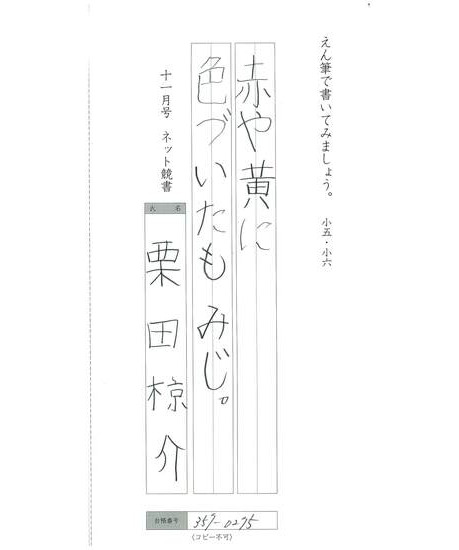 えん筆で書いてみましょう。 小五・小六
赤や黄に
色づいたもみじ。
十一月号 ネット競書
氏名
栗田椋介
台帳番号 359-0275
(コピー不可)